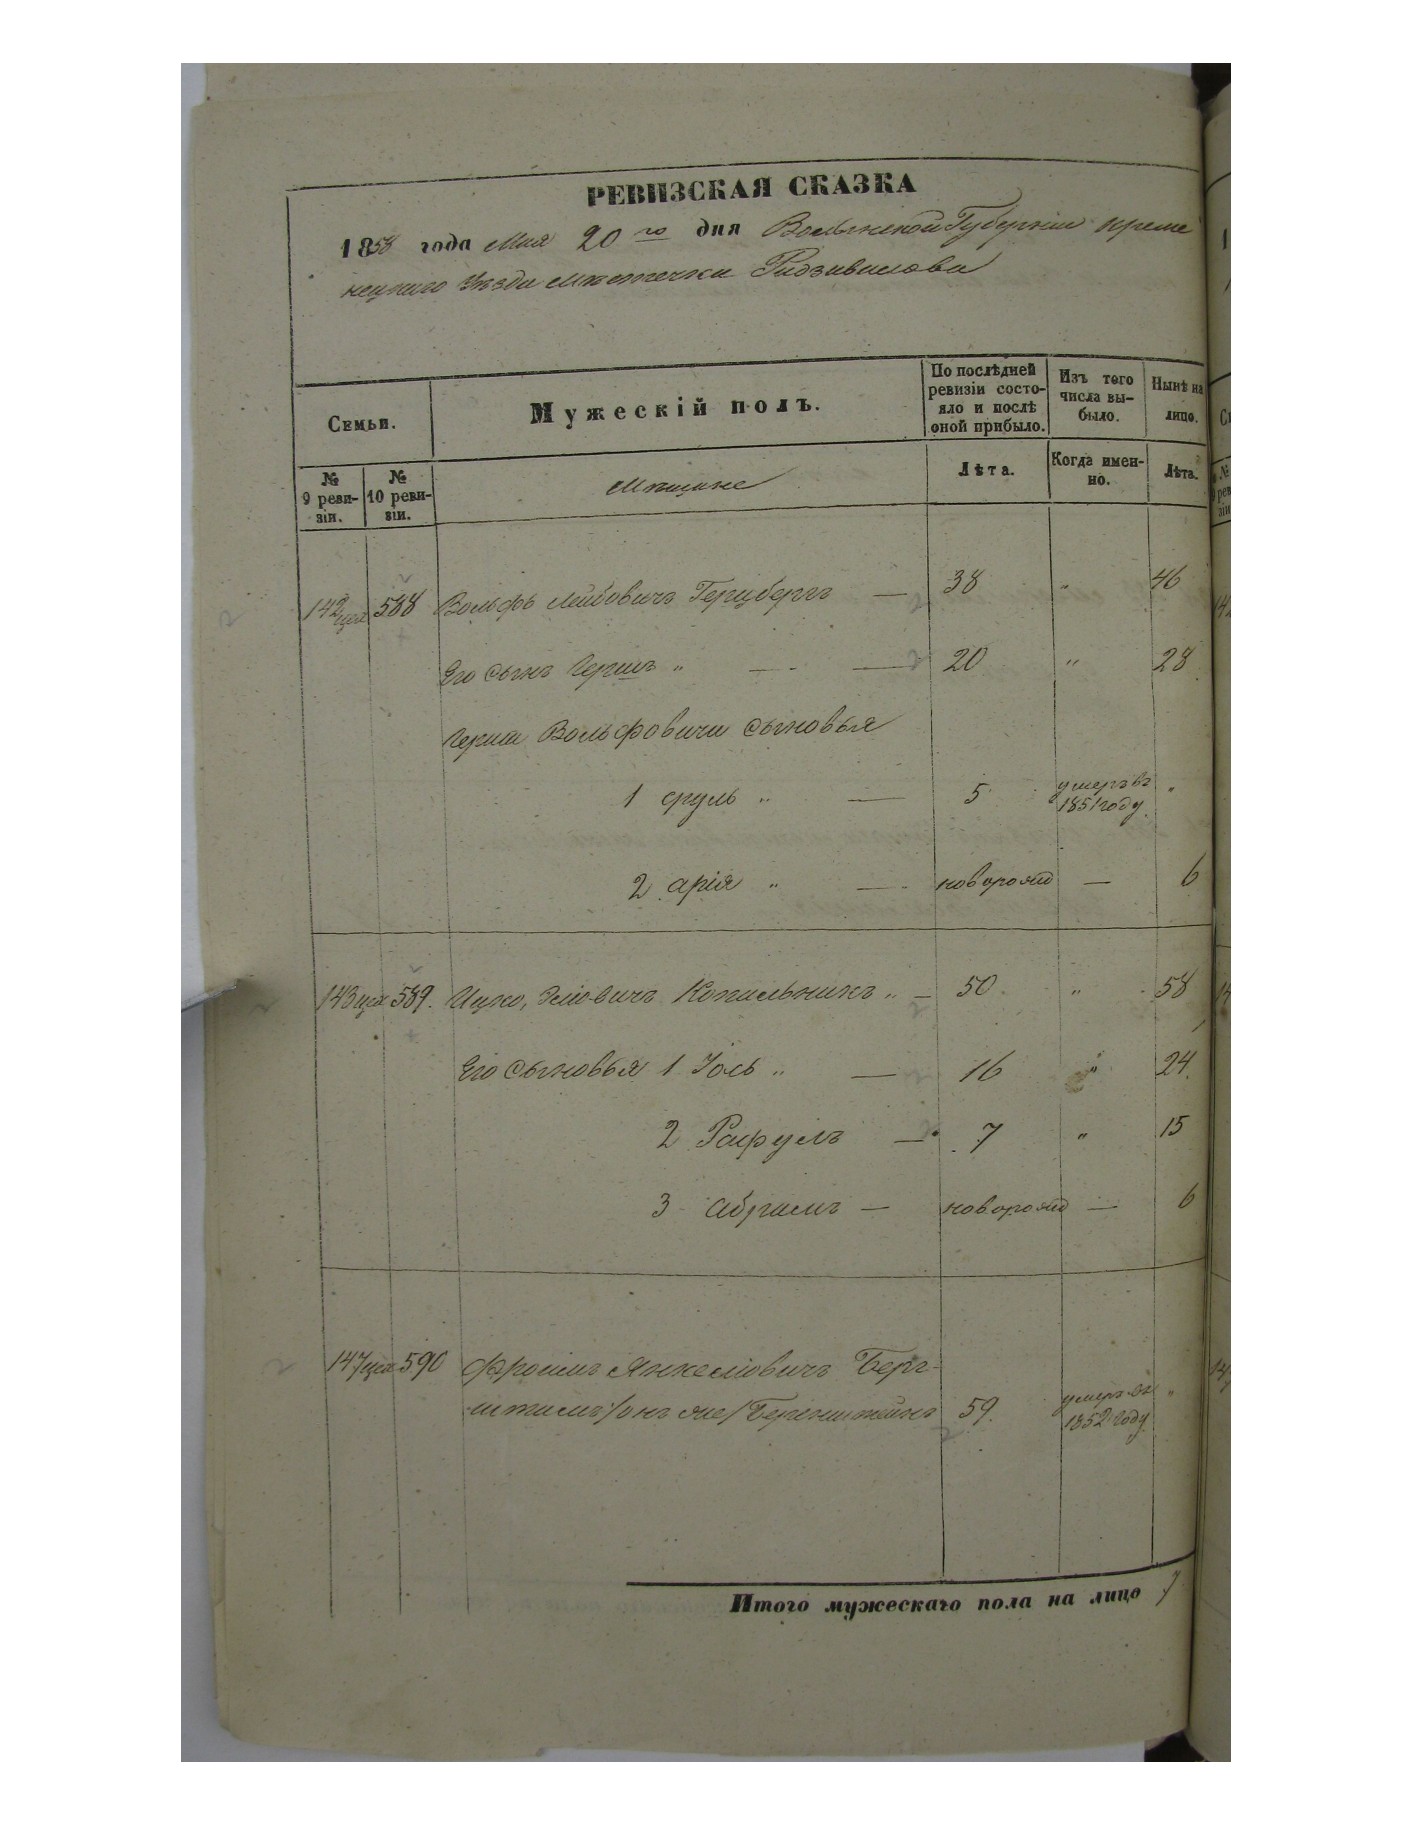 РЕВИЗСКАЯ СКАЗКА
1858 года Мая 20го дня Волынской Губерніи Креме
нецкаго Уезда местечка Радзивилова
Семьи.
Мужескій полъ.
По послѣдней ревизіи состо-
яло и послѣ оной прибыло.
Изъ того числа вы-
было.
Нынѣ на лицо.
№ 9 реви-
зіи.
№ 10 реви-
зіи.
Мещане
Лѣта.
Когда имен-
но.
Лѣта.
142 цех 588 Вольфъ Лейбовичъ Герцбергъ — 38 " 46
Его сынъ Гершъ " — — 20 " 28
Герша Вольфовича сыновья
1 Сруль " — 5 умеръ въ 1851 году "
2 Арія " — новорожд — 6
143 цех 589. Ицко, Эліовичъ Копильникъ " — 50 " 58
Его сыновья 1 Іоль " — 16 " 24.
2 Рафулъ — 7 " 15
3 Абрамъ — новорожд — 6
147 цех 590 Фроимъ Янкеліовичъ Берг-
штамъ /онъ же/ Беренштейнъ 59. умеръ въ 1852 году "
Итого мужескаго пола на лицо 7